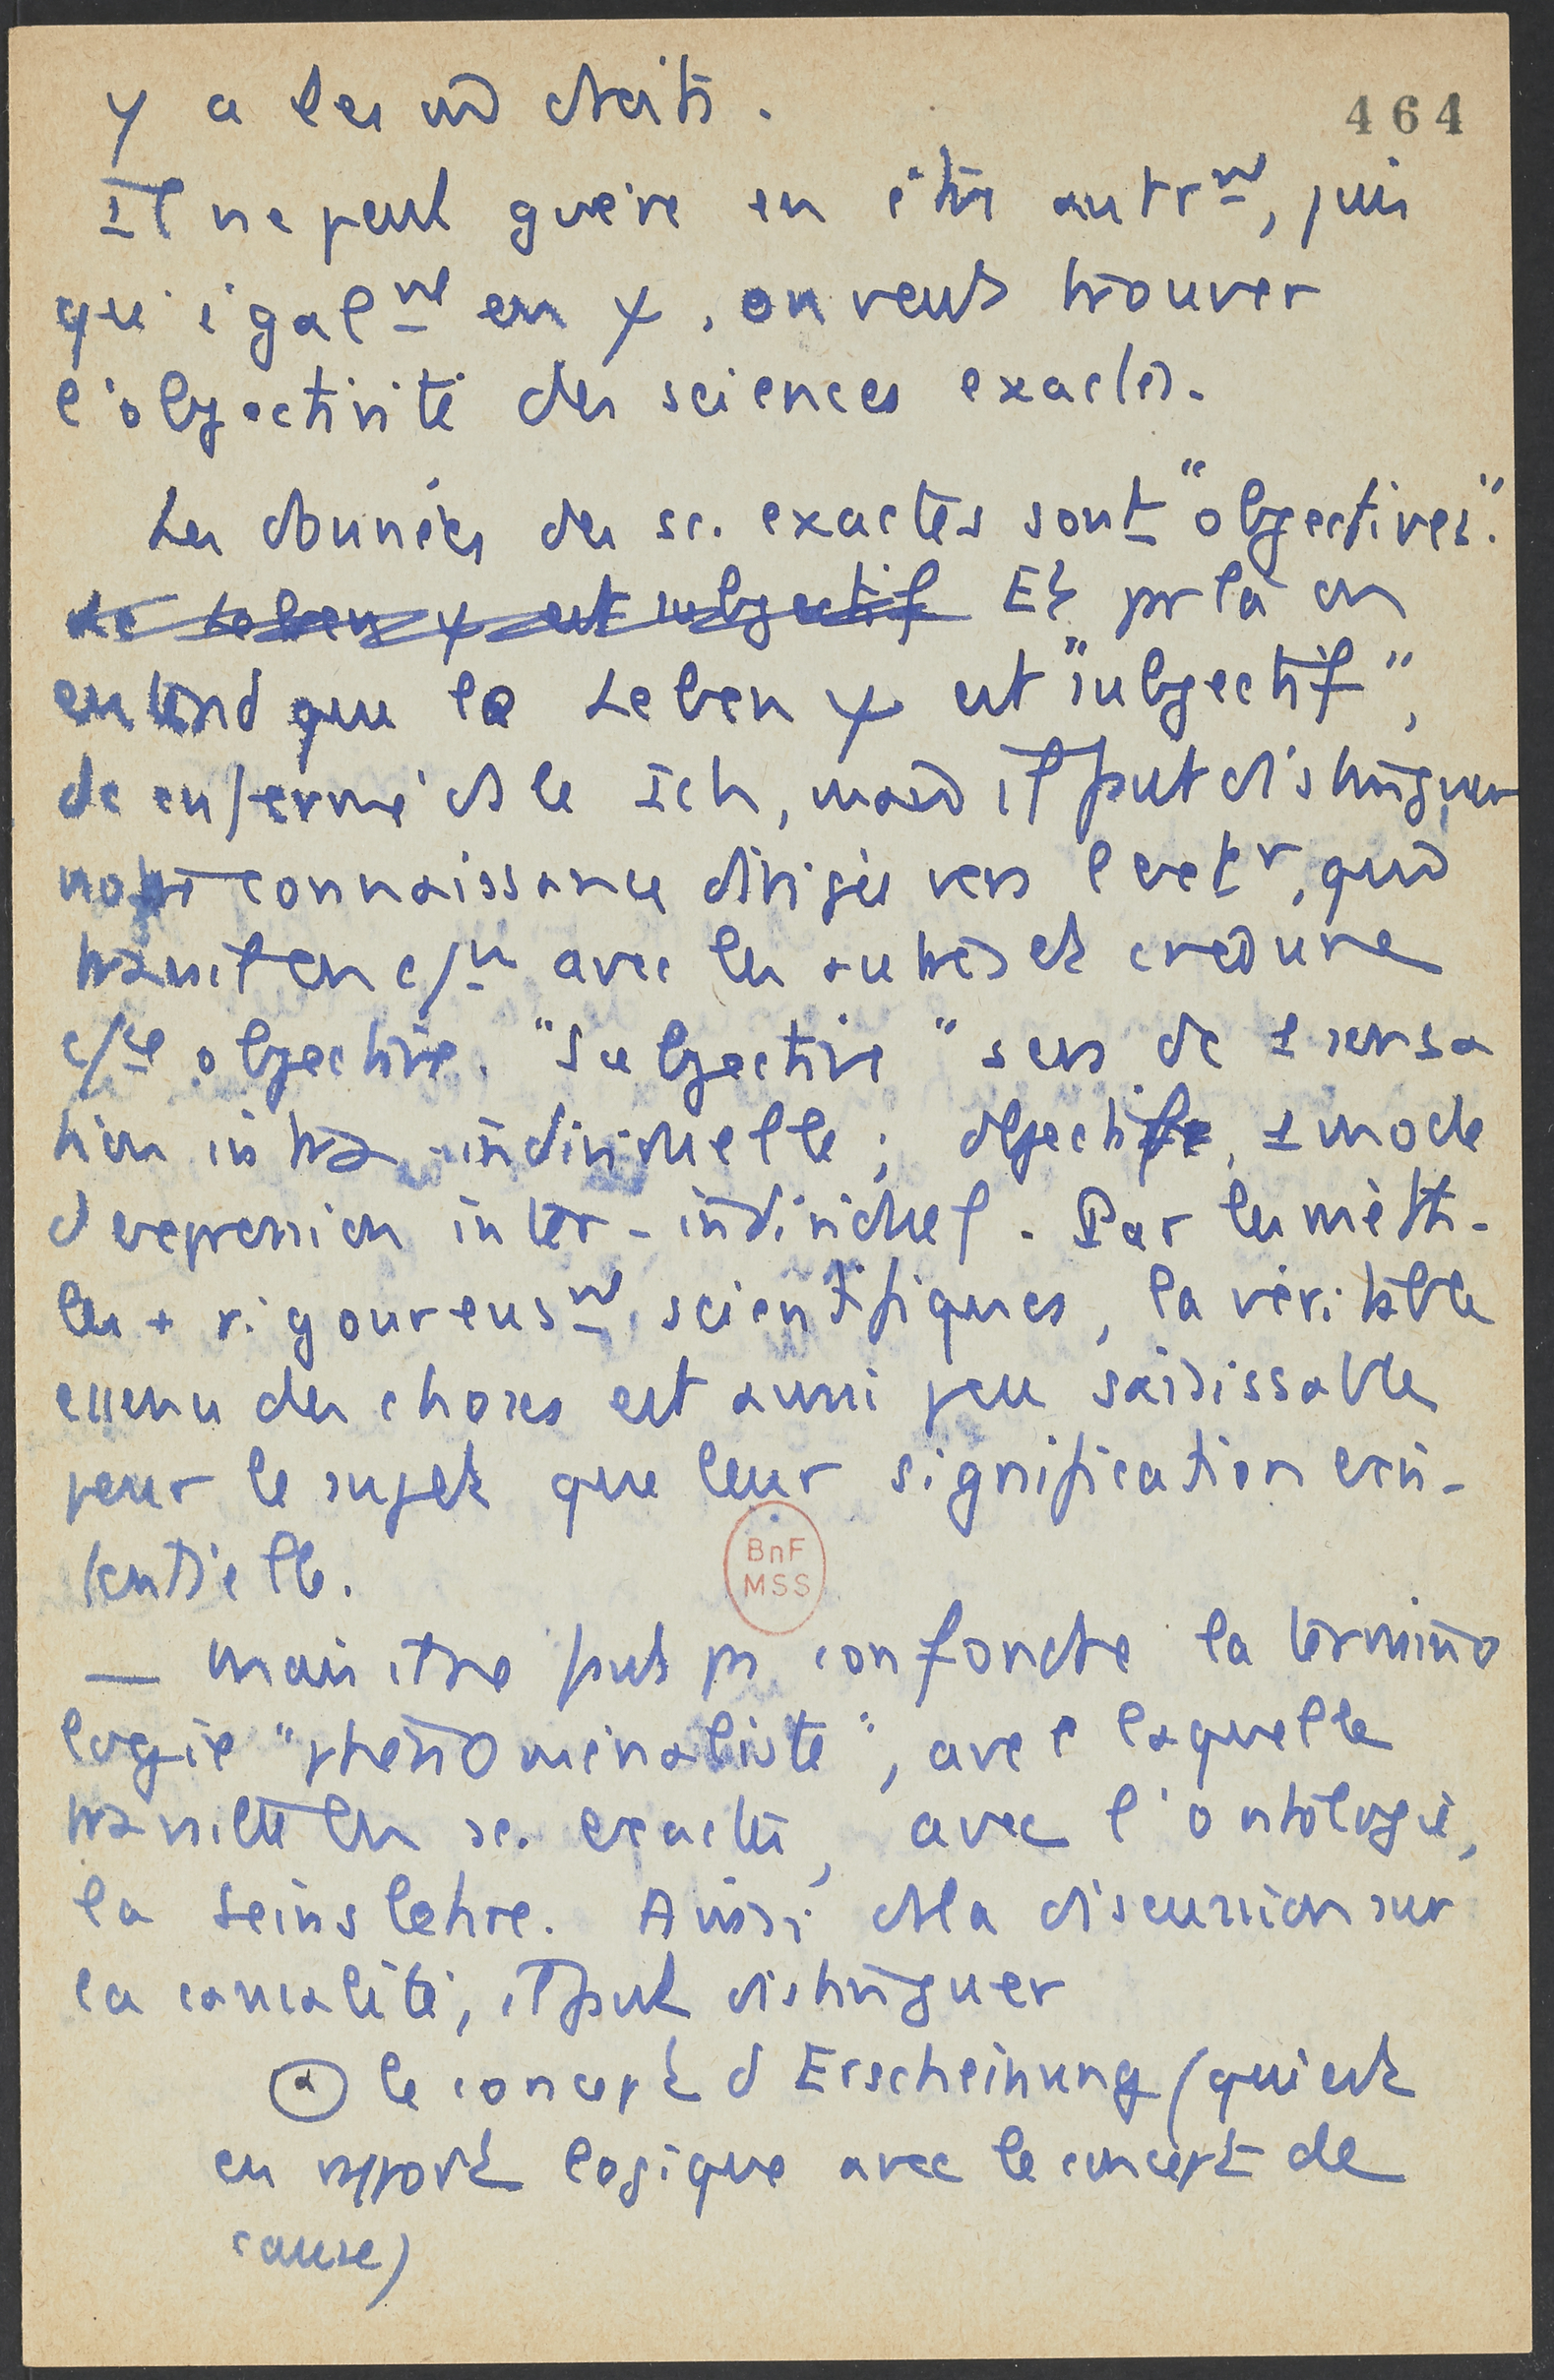 y a les mes droits.
464
Il ne peut guère en être autrmt, puis
qu'égalmt en ψ, on veut trouver
l'objectivité des sciences exactes.
Les données des sc. exactes sont "objectives".
Le Leben ψ est subjectif Et par là on
entend que le Leben ψ est "subjectif",
de enfermé ds le Ich, mais il faut distinguer
notre connaissance dirigée vers l'extr, qui
travaille en avec les autres et crée une
objective. "Subjective" sens de 1 sensa
tion intra-individuelle; objectif, 1 mode
d'expression inter-individuel. Par les méth.
les + rigoureusmt scientifiques, la véritable
essence des choses est aussi peu saisissable
pour le sujet que leur signification exis-
tentielle.
— Mais il ne faut pas confondre la termino
logie "phénoménaliste", avec laquelle
travaillent les sc. exactes, avec l'ontologie,
la Seinslehre. Ainsi ds la discussion sur
la causalité, il faut distinguer
a le concept d'Erscheinung (qui est
en rapport logique avec le concept de
cause)
BnF
MSS